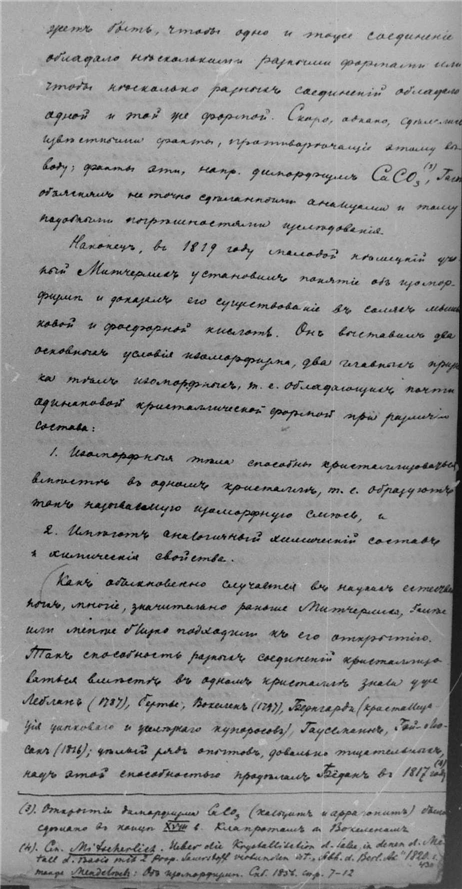 жетъ быть, чтобы одно и тоже соединеніе
обладало нѣсколькими разными формами или
чтобы нѣсколько разныхъ соединеній обладало
одной и той же формой. Скоро, однако, сдѣлались
извѣстными факты, противорѣчащіе этому вы-
воду; факты эти, напр. диморфизмъ CaCO₃ (3),
объяснялъ не точно сдѣланными анализами и тому
подобными погрѣшностями изслѣдованія.
Наконецъ, въ 1819 году молодой нѣмецкій уче-
ный Митчерлихъ установилъ понятіе объ изомор-
физмѣ и доказалъ его существованіе въ соляхъ мышья-
ковой и фосфорной кислотъ. Онъ выставилъ два
основныхъ условія изоморфизма, два главныхъ призна-
ка тѣлъ изоморфныхъ, т. е. обладающихъ почти
одинаковой кристаллической формой при различіи
состава:
1. Изоморфныя тѣла способны кристаллизоваться
вмѣстѣ въ одномъ кристаллѣ, т. е. образуютъ
такъ называемую изоморфную смѣсь, и
2. Имѣютъ аналогичный химическій составъ
и химическія свойства.
(Какъ обыкновенно случается въ наукахъ естествен-
ныхъ, многіе, значительно раньше Митчерлиха, болѣе
или менѣе близко подходили къ его открытію.
Такъ способность разныхъ соединеній кристаллизо-
ваться вмѣстѣ въ одномъ кристаллѣ знали уже
Лебланъ (1787), Бертье, Вокеленъ (1797), Бернгарди (кристаллиза-
ція цинковаго и желѣзнаго купоросовъ), Гаусманнъ, Гей-Люс-
сакъ (1816); цѣлый рядъ опытовъ, довольно тщательныхъ,
надъ этой способностью продѣлалъ Бёданъ въ 1817 году (4)
(3). Открытіе диморфизма CaCO₃ (кальцитъ и аррагонитъ) было
сдѣлано въ концѣ XVIII в. Клапротомъ и Вокеленомъ.
(4). См. Mitscherlich. Ueber die Krystallisation d. Salze, in denen d. Me-
tall d. Basis mit 2 Prop. Sauerstoff verbunden ist. Abh. d. Berl. Ac. 1820.
также Mendelejeff: Объ изоморфизмѣ. Спб. 1856. стр. 7-12